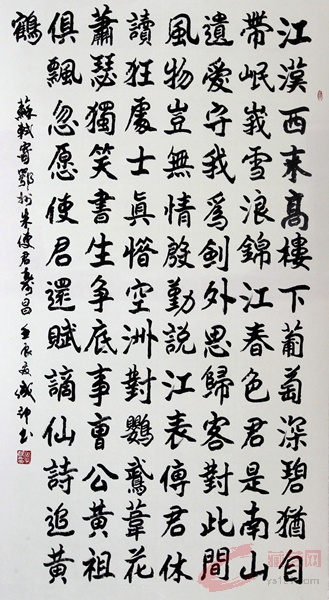 江漢西來高樓下葡萄深碧猶自
帶岷峩雪浪錦江春色君是南山
遺愛守我為劍外思歸客對此間
風物豈無情殷勤說江表傳君休
讀狂處士眞惜空洲對鸚鵡葦花
蕭瑟獨笑書生爭底事曹公黃祖
俱飄忽愿使君還賦謫仙詩追黃
鶴
蘇軾寄鄂州朱使君壽昌壬辰夏